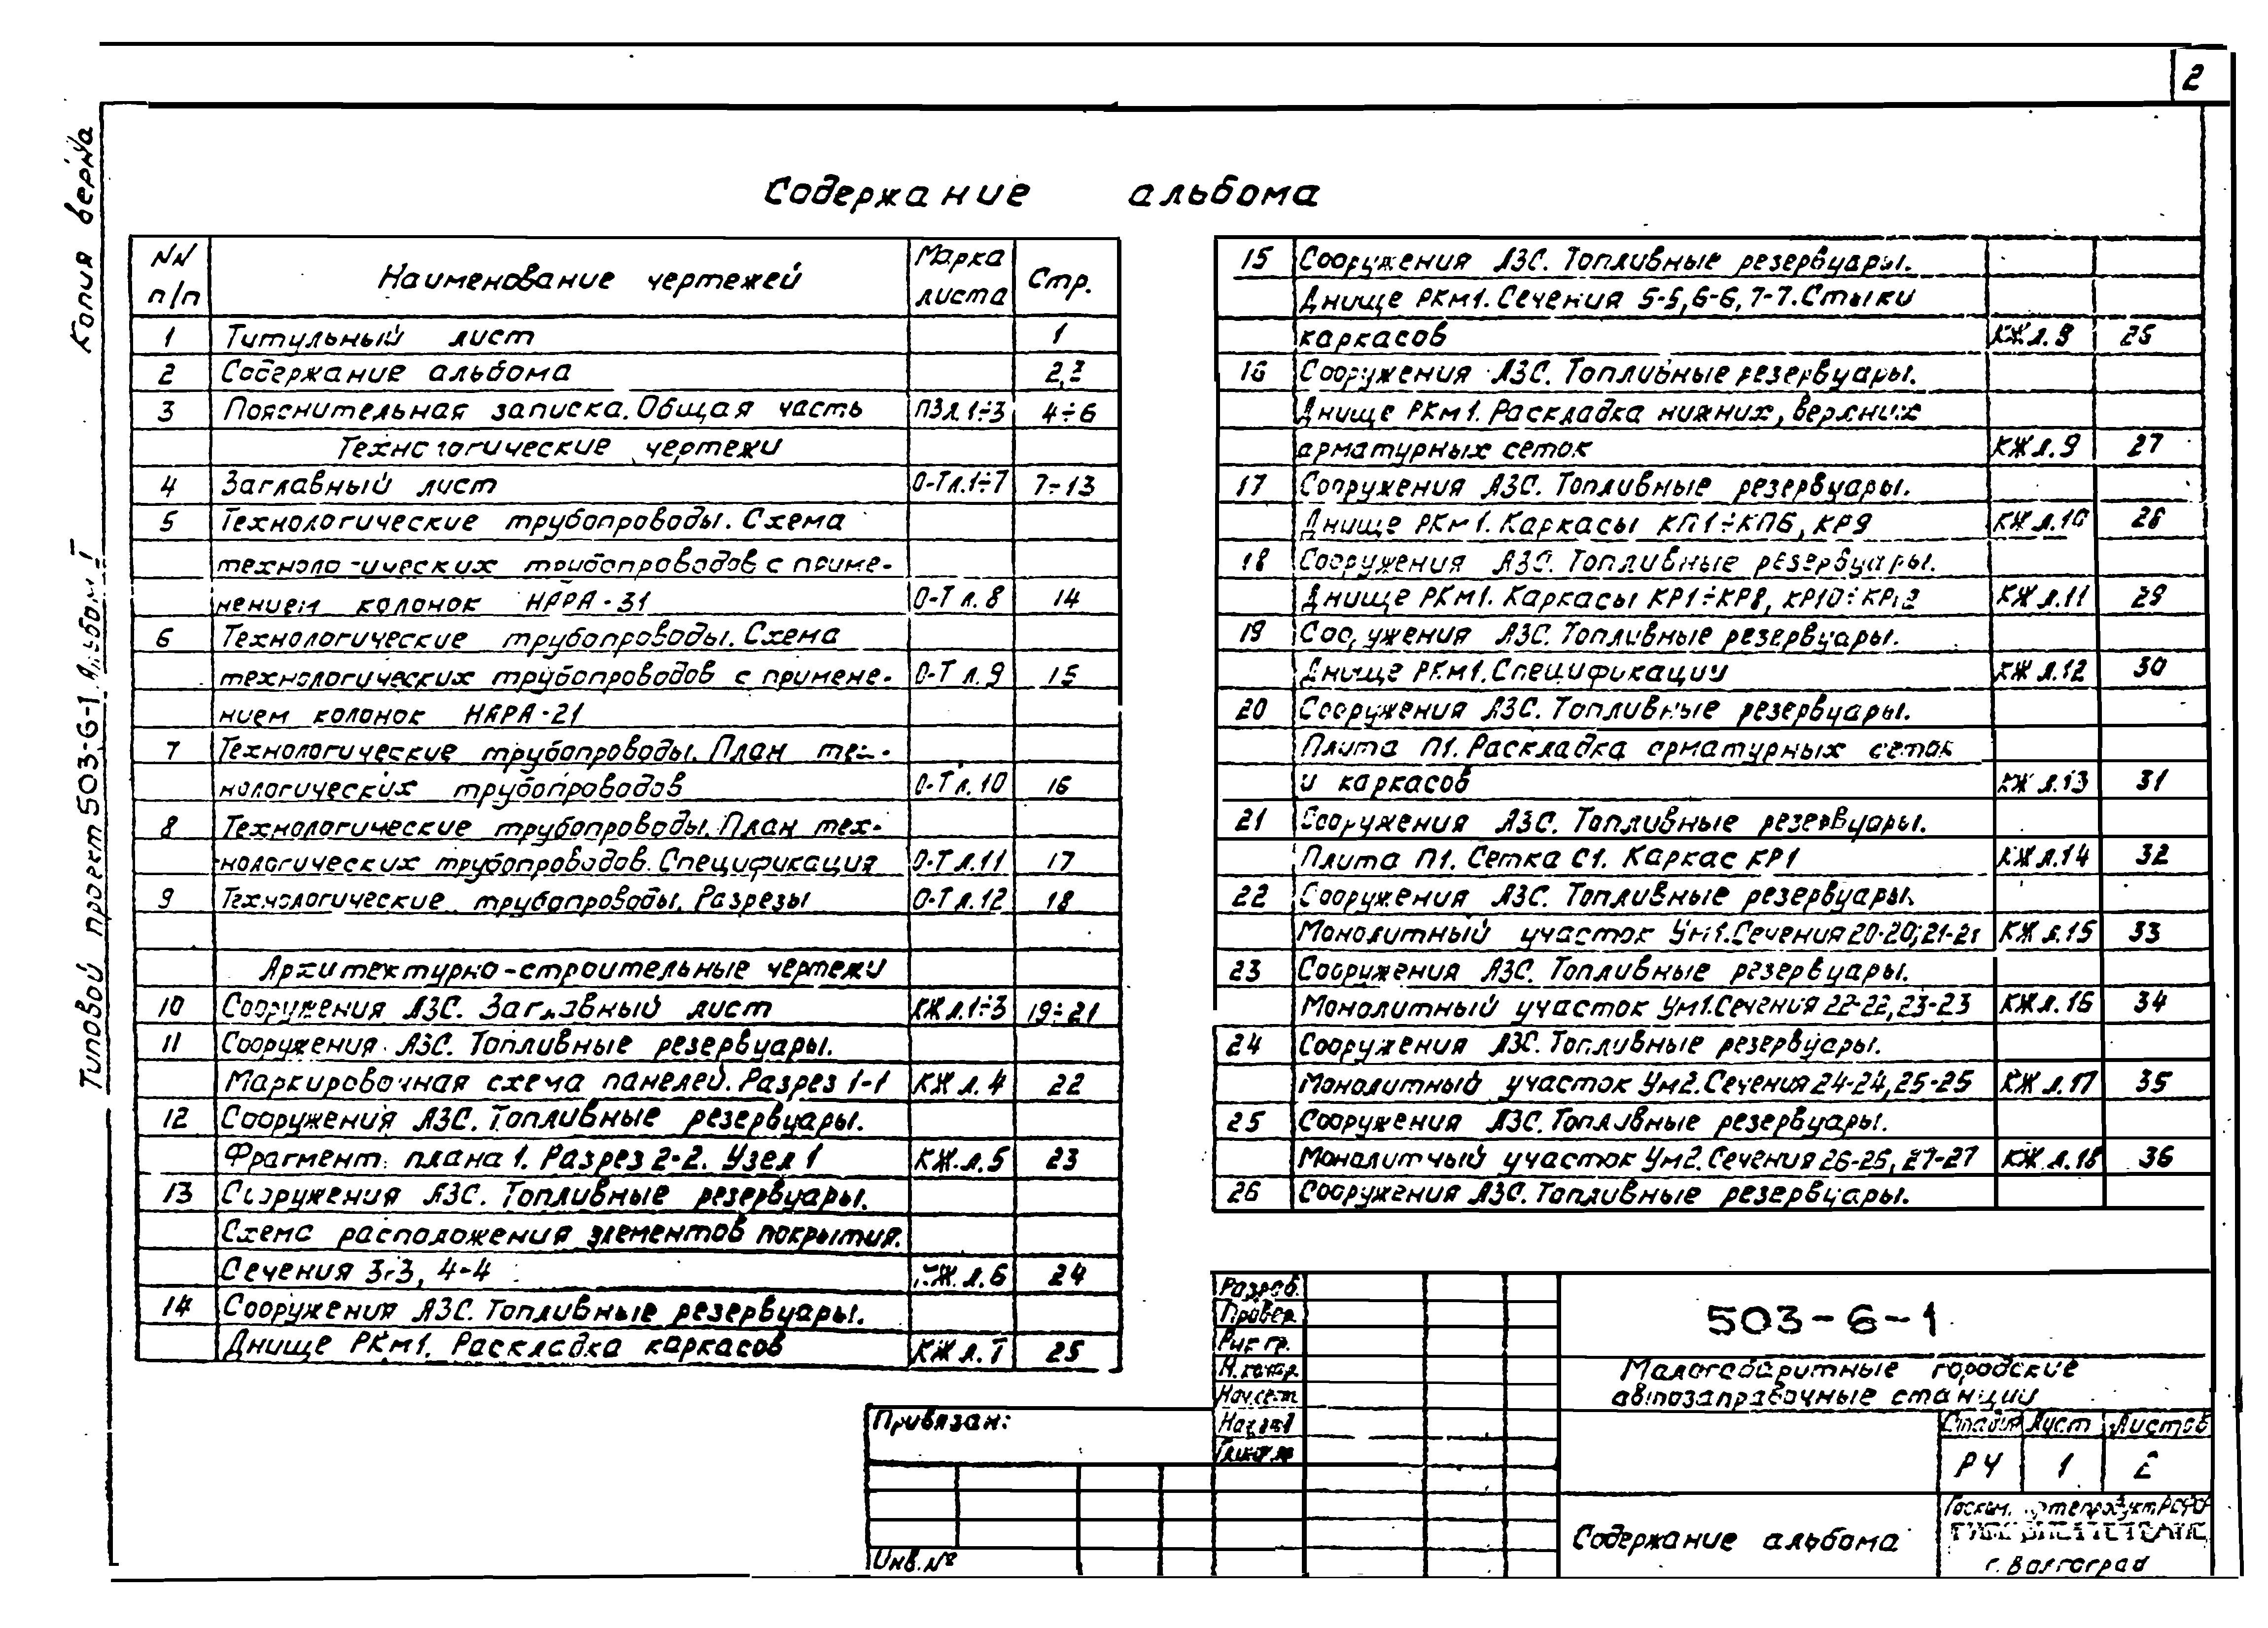 2
Копия верна
Типовой проект 503-6-1 Альбом I
Содержание альбома
NN п/п Наименование чертежей Марка листа Стр.
1 Титульный лист 1
2 Содержание альбома 2,3
3 Пояснительная записка. Общая часть ПЗ л.1÷3 4÷6
Технологические чертежи
4 Заглавный лист О-Т л.1÷7 7÷13
5 Технологические трубопроводы. Схема
технологических трубопроводов с приме-
нением колонок НАРА-31 О-Т л. 8 14
6 Технологические трубопроводы. Схема
технологических трубопроводов с примене- О-Т л. 9 15
нием колонок НАРА-21
7 Технологические трубопроводы. План тех-
нологических трубопроводов О-Т л. 10 16
8 Технологические трубопроводы. План тех-
нологических трубопроводов. Спецификация О-Т л.11 17
9 Технологические трубопроводы. Разрезы О-Т л.12 18
Архитектурно-строительные чертежи
10 Сооружения АЗС. Заглавный лист КЖ л.1÷3 19÷21
11 Сооружения АЗС. Топливные резервуары.
Маркировочная схема панелей. Разрез 1-1 КЖ л. 4 22
12 Сооружения АЗС. Топливные резервуары.
Фрагмент плана 1. Разрез 2-2. Узел 1 КЖ.л.5 23
13 Сооружения АЗС. Топливные резервуары.
Схема расположения элементов покрытия.
Сечения 3-3, 4-4 КЖ.л.6 24
14 Сооружения АЗС. Топливные резервуары.
Днище РКм1. Раскладка каркасов КЖ л. 7 25
15 Сооружения АЗС. Топливные резервуары.
Днище РКм1. Сечения 5-5, 6-6, 7-7. Стыки
каркасов КЖ л. 8
16 Сооружения АЗС. Топливные резервуары.
Днище РКм1. Раскладка нижних, верхних
арматурных сеток КЖ л. 9 27
17 Сооружения АЗС. Топливные резервуары.
Днище РКм1. Каркасы КП1÷КП6, КР9 КЖ л.10 28
18 Сооружения АЗС. Топливные резервуары.
Днище РКм1. Каркасы КР1÷КР8, КР10÷КР12 КЖ л.11 29
19 Сооружения АЗС. Топливные резервуары.
Днище РКм1. Спецификации КЖ л.12 30
20 Сооружения АЗС. Топливные резервуары.
Плита П1. Раскладка арматурных сеток
и каркасов КЖ л.13 31
21 Сооружения АЗС. Топливные резервуары.
Плита П1. Сетка С1. Каркас КР1 КЖ л.14 32
22 Сооружения АЗС. Топливные резервуары.
Монолитный участок Ум1. Сечения 20-20; 21-21 КЖ л.15 33
23 Сооружения АЗС. Топливные резервуары.
Монолитный участок Ум1. Сечения 22-22, 23-23 КЖ л. 16 34
24 Сооружения АЗС. Топливные резервуары.
Монолитный участок Ум2. Сечения 24-24, 25-25 КЖ л. 17 35
25 Сооружения АЗС. Топливные резервуары.
Монолитный участок Ум2. Сечения 26-26, 27-27 КЖ л.18 36
26 Сооружения АЗС. Топливные резервуары.
Разраб.
Провер.
Рук. гр.
Н.контр.
Нач.сект.
503-6-1
Малогабаритные городские
автозаправочные станции
Стадия Лист Листов
РЧ 1 2
Содержание альбома
Госком. нефтепродукт РСФСР
г. Волгоград
Привязан:
Инв. №